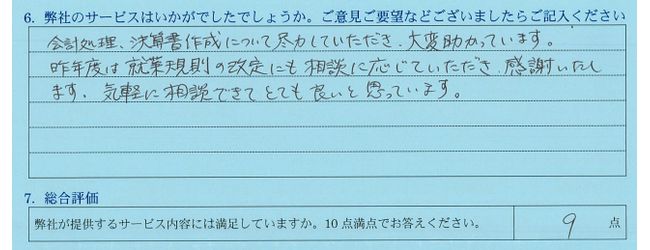 6. 弊社のサービスはいかがでしたでしょうか。ご意見ご要望などございましたらご記入ください
会計処理、決算書作成について尽力していただき、大変助かっています。
昨年度は就業規則の改定にも相談に応じていただき、感謝いたし
ます。気軽に相談できてとても良いと思っています。
7. 総合評価
弊社が提供するサービス内容には満足していますか。10点満点でお答えください。 9 点